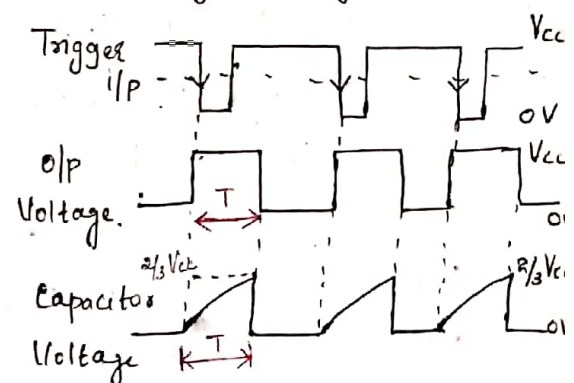 Trigger
i/p
Vcc
0V
O/P
Voltage.
Vcc
T
0V
2/3 Vcc
Capacitor
Voltage
2/3 Vcc
0V
T